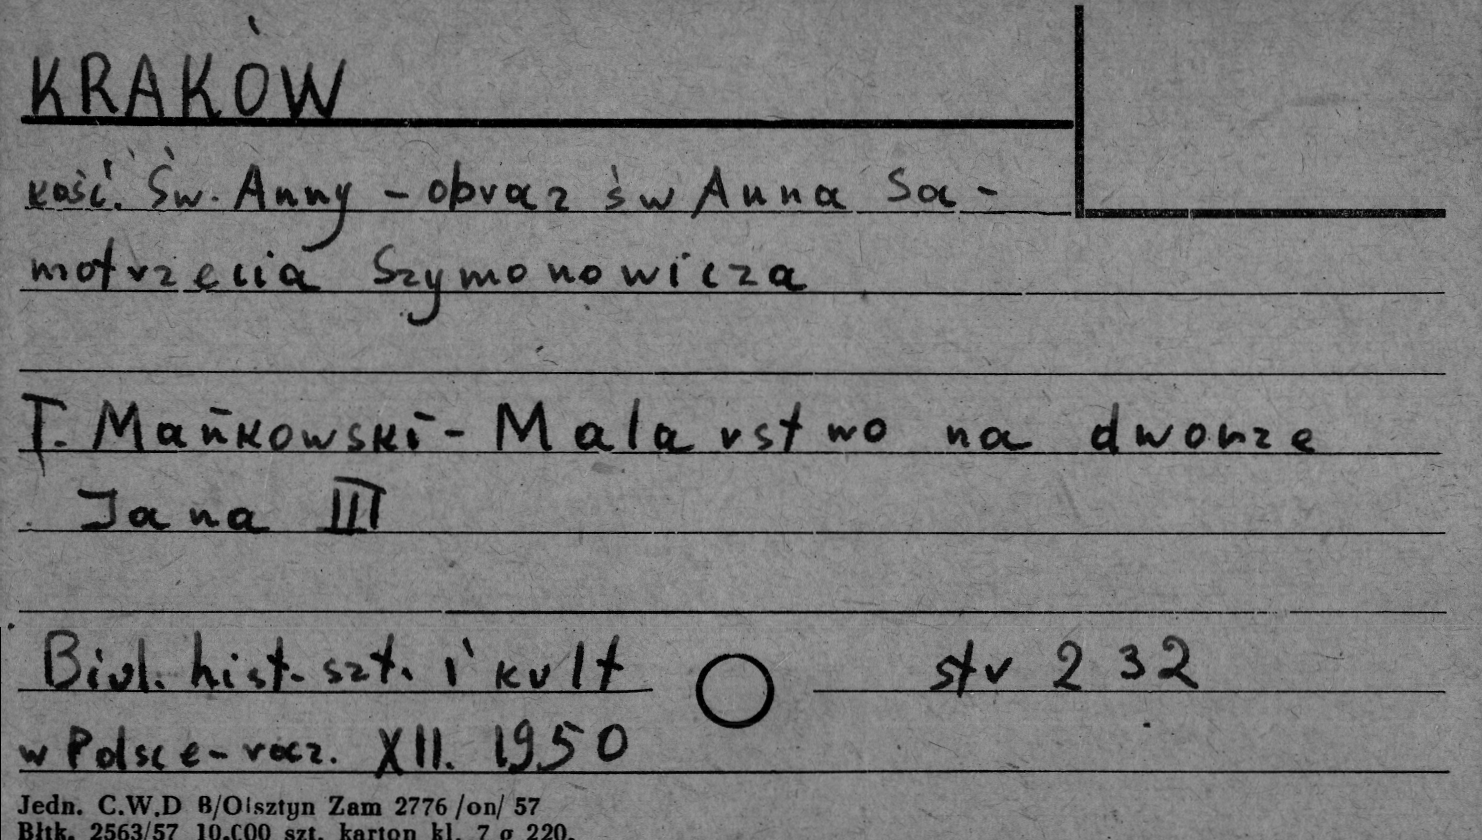 KRAKÓW
kość. Św. Anny - obraz św Anna Sa-
motrzecia Szymonowicza
T. Mańkowski - Malarstwo na dworze
Jana III
Biul. hist. szt. i kult
str 232
w Polsce - rocz. XII. 1950
Jedn. C.W.D B/Olsztyn Zam 2776 /on/ 57
Błtk. 2563/57 10.000 szt. karton kl. 7 g 220.